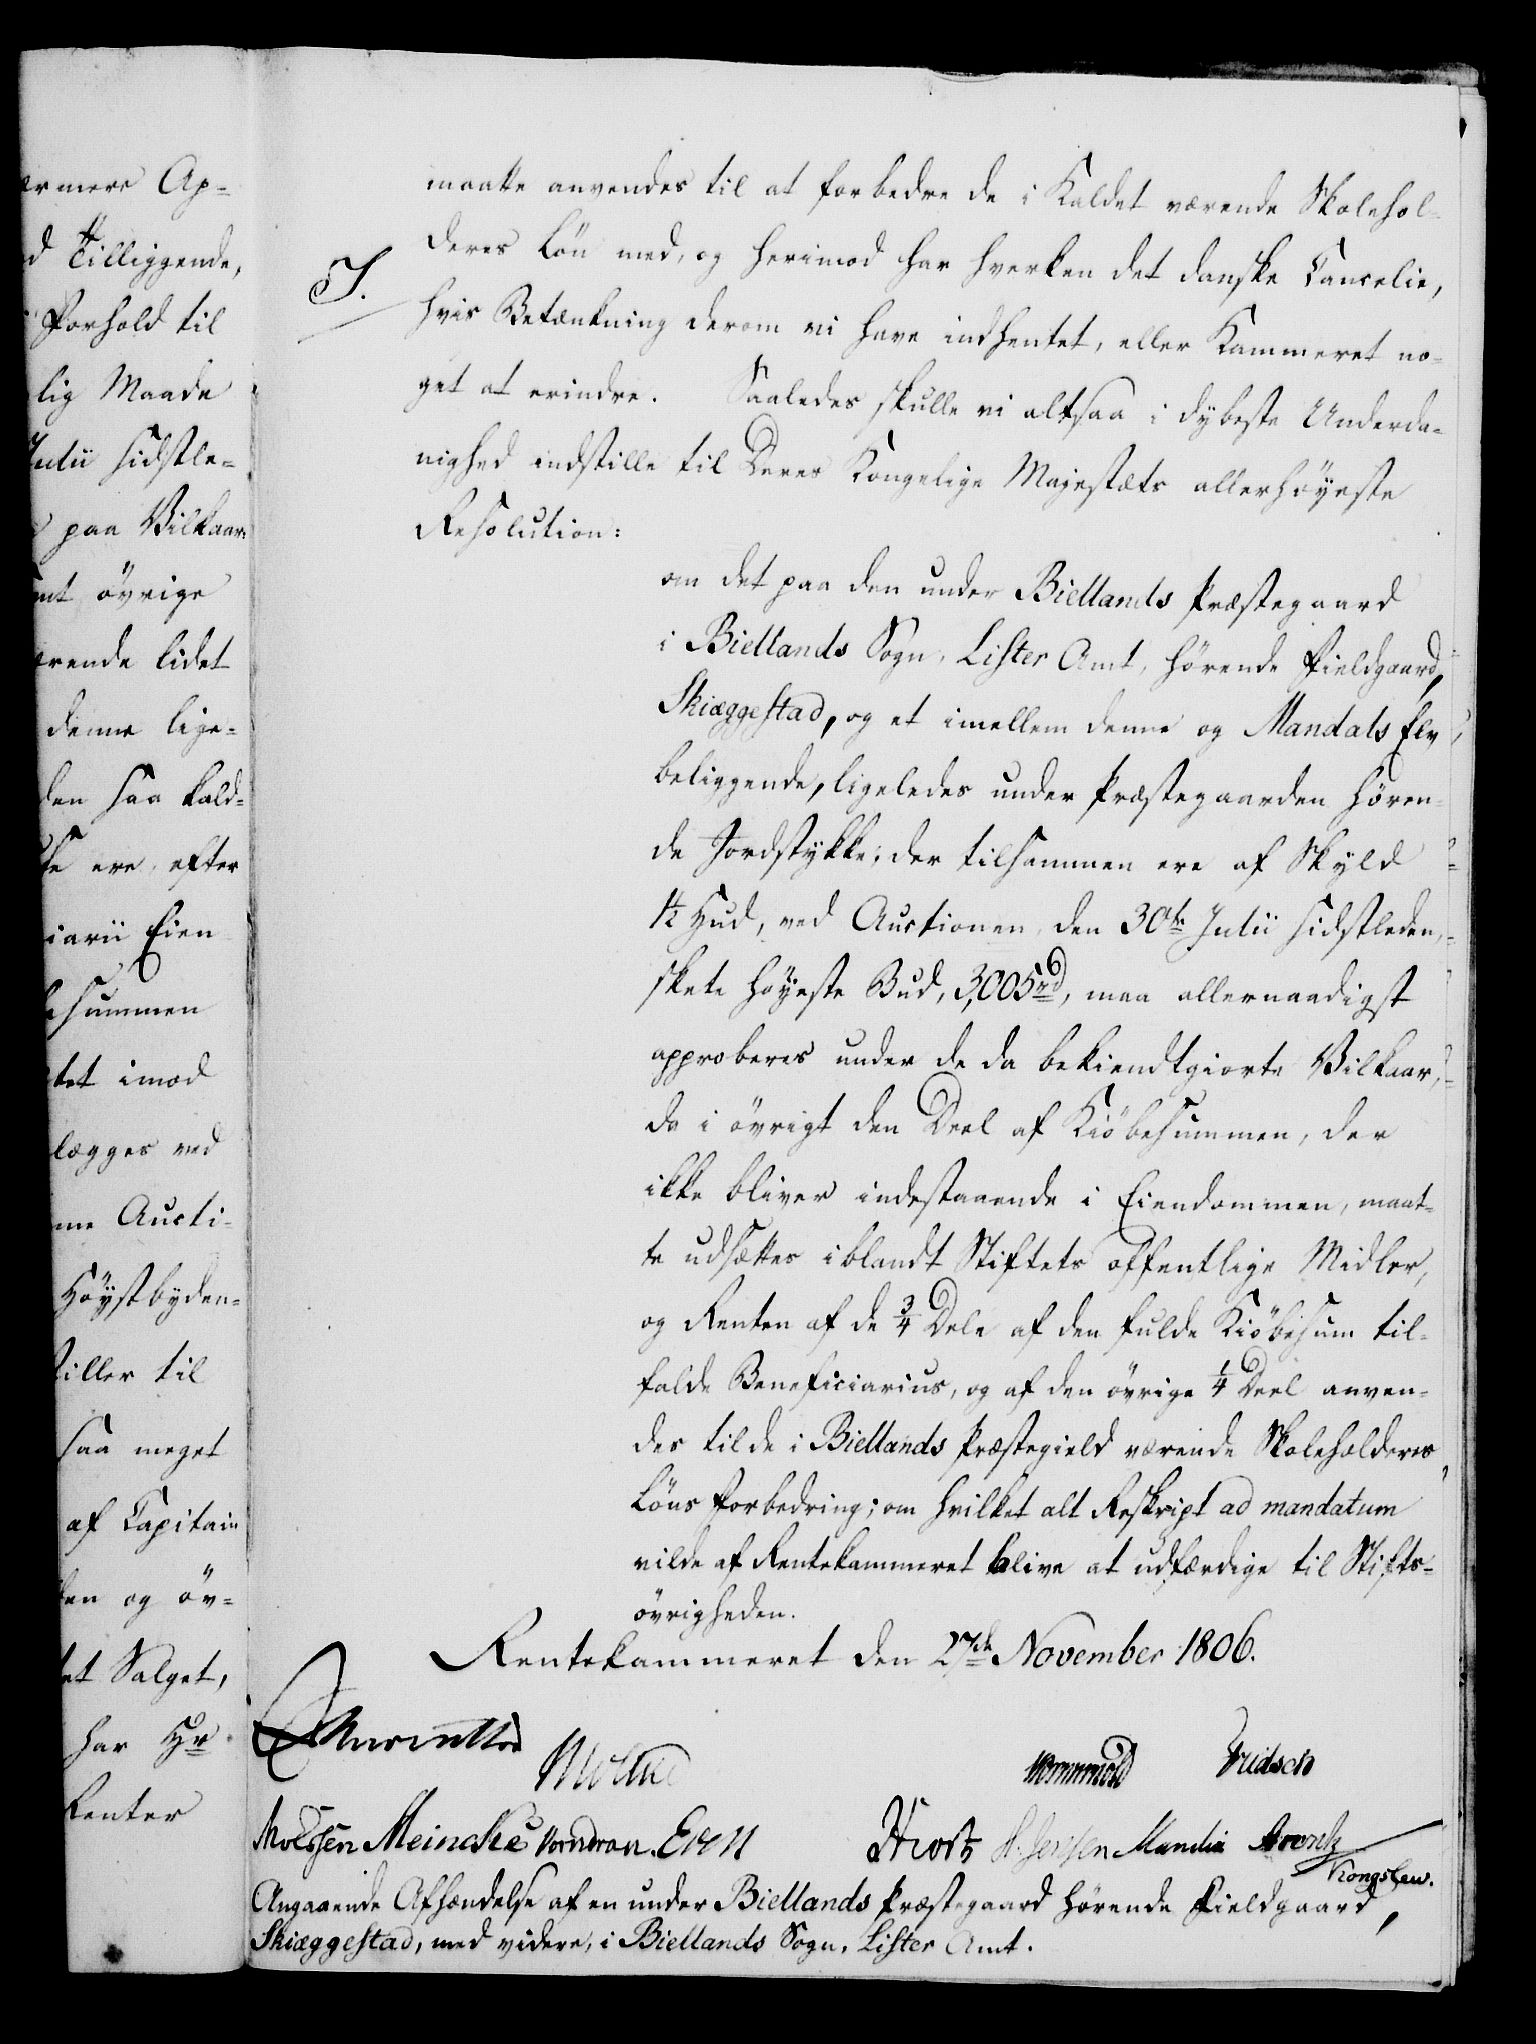 ærmere Ap-
d Tilliggende,
Forhold til
lig Maade
Julii sidstle-
paa Vilkaar
mt övrige
ærende lidet
denne lige-
den saa kald-
ere efter
iarii Eien
esummen
tet imod
lægges ved
nne Aucti-
Höystbyden-
stiller til
saa meget
af Capitain
en og öv-
et Salget,
har Hr
Renter
maatte anvendes til at forbedre de i Kaldet værende Skolehol-
deres Lön med, og herimod har hverken det danske Cancelie,
J.
hvis Betænkning derom vi have indhentet, eller Kammeret no-
get at erindre. Saaledes skulle vi altsaa i dybeste Underda-
nighed indstille til Deres Kongelige Majestæts allerhöyeste
Resolution:
om det paa den under Biellands Præstegaard
i Biellands Sogn, Lister Amt, hörende Fieldgaard,
Skiæggestad, og et imellem denne og Mandals Elv
beliggende, ligeledes under Præstegaarden hören-
de Jordstykke, der tilsammen ere af Skyld
1/2 Hud, ved Auctionen den 30te Julii sidstleden,
skete höyeste Bud, 3,005 rd, maa allernaadigst
approberes under de da bekiendtgiorte Vilkaar,
da i övrigt den Deel af Kiöbesummen, der
ikke bliver indestaaende i Eiendommen, maat-
te udsættes iblandt Stiftets offentlige Midler,
og Renten af de 3/4 Dele af den fulde Kiöbesum til-
falde Beneficiarius, og af den övrige 1/4 Deel anven-
des til de i Biellands Præstegield værende Skoleholderes
Löns Forbedring; om hvilket alt Reskript ad mandatum
vilde af Rentekammeret blive at udfærdige til Stifts-
övrigheden.
Rentekammeret den 27de November 1806.
Wormskiold Knudsen
Moessen Meincke Vorndran. Eeen Hiort H. Jenssen Manthei Arentz
Kongslew.
Angaaende Afhændelse af en under Biellands Præstegaard hörende Fieldgaard,
Skiæggestad, med videre, i Biellands Sogn, Lister Amt.